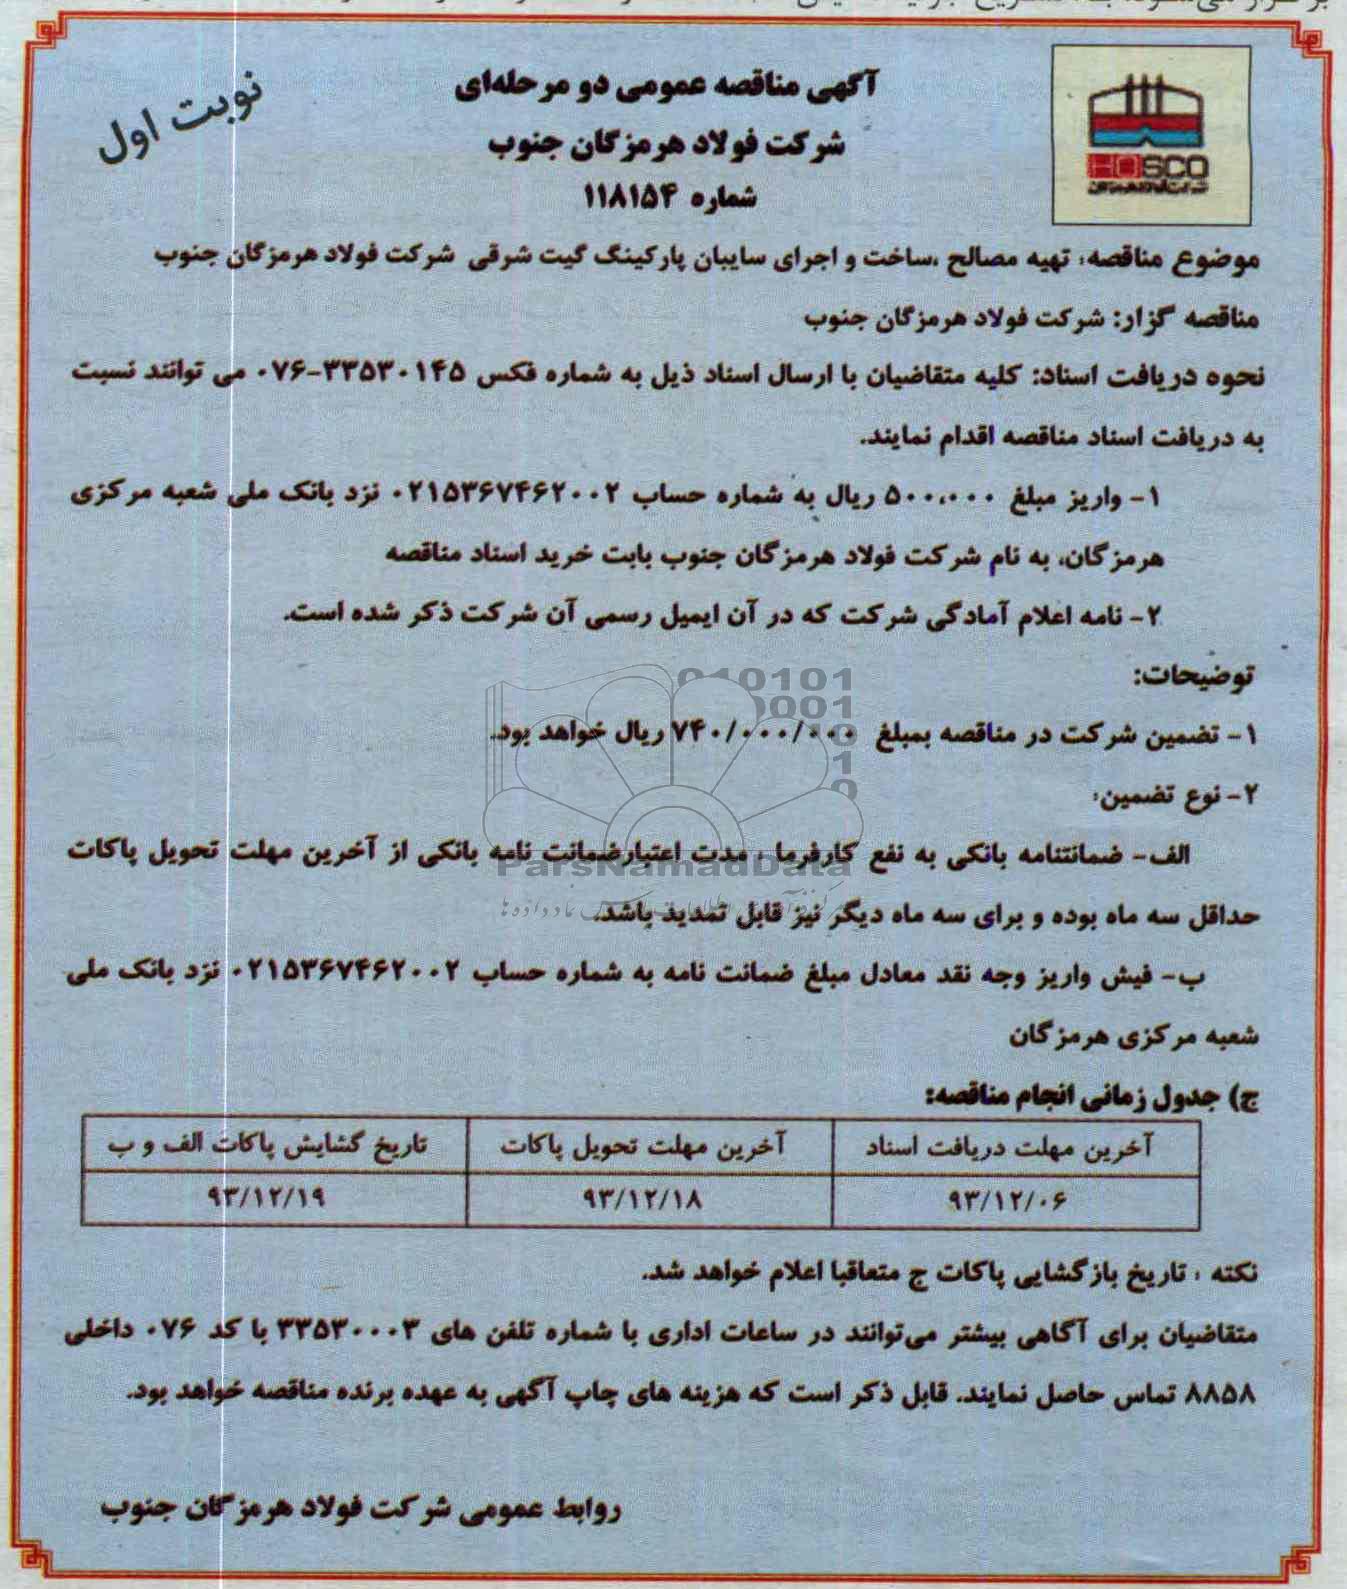 آگهی مناقصه عمومی دو مرحله‌ای
شرکت فولاد هرمزگان جنوب
شماره ۱۱۸۱۵۴
نوبت اول
HOSCO
موضوع مناقصه: تهیه مصالح ،ساخت و اجرای سایبان پارکینگ گیت شرقی شرکت فولاد هرمزگان جنوب
مناقصه گزار: شرکت فولاد هرمزگان جنوب
نحوه دریافت اسناد: کلیه متقاضیان با ارسال اسناد ذیل به شماره فکس ۳۳۵۳۰۱۴۵-۰۷۶ می توانند نسبت
به دریافت اسناد مناقصه اقدام نمایند.
۱- واریز مبلغ ۵۰۰،۰۰۰ ریال به شماره حساب ۰۲۱۵۳۶۷۴۶۲۰۰۲ نزد بانک ملی شعبه مرکزی
هرمزگان، به نام شرکت فولاد هرمزگان جنوب بابت خرید اسناد مناقصه
۲- نامه اعلام آمادگی شرکت که در آن ایمیل رسمی آن شرکت ذکر شده است.
توضیحات:
۱- تضمین شرکت در مناقصه بمبلغ ۷۴۰/۰۰۰/۰۰۰ ریال خواهد بود.
۲- نوع تضمین:
الف- ضمانتنامه بانکی به نفع کارفرما ، مدت اعتبارضمانت نامه بانکی از آخرین مهلت تحویل پاکات
ParsNamadData
حداقل سه ماه بوده و برای سه ماه دیگر نیز قابل تمدید باشد.
ب- فیش واریز وجه نقد معادل مبلغ ضمانت نامه به شماره حساب ۰۲۱۵۳۶۷۴۶۲۰۰۲ نزد بانک ملی
شعبه مرکزی هرمزگان
ج) جدول زمانی انجام مناقصه:
آخرین مهلت دریافت اسناد آخرین مهلت تحویل پاکات تاریخ گشایش پاکات الف و ب
۹۳/۱۲/۰۶ ۹۳/۱۲/۱۸ ۹۳/۱۲/۱۹
نکته : تاریخ بازگشایی پاکات ج متعاقبا اعلام خواهد شد.
متقاضیان برای آگاهی بیشتر می‌توانند در ساعات اداری با شماره تلفن های ۳۳۵۳۰۰۰۳ با کد ۰۷۶ داخلی
۸۸۵۸ تماس حاصل نمایند. قابل ذکر است که هزینه های چاپ آگهی به عهده برنده مناقصه خواهد بود.
روابط عمومی شرکت فولاد هرمزگان جنوب